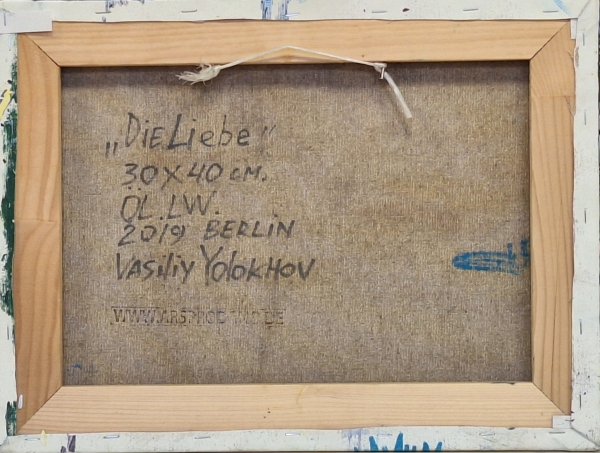 „Die Liebe"
30 x 40 cm.
ÖL. LW.
2019 BERLIN
Vasiliy Yolokhov